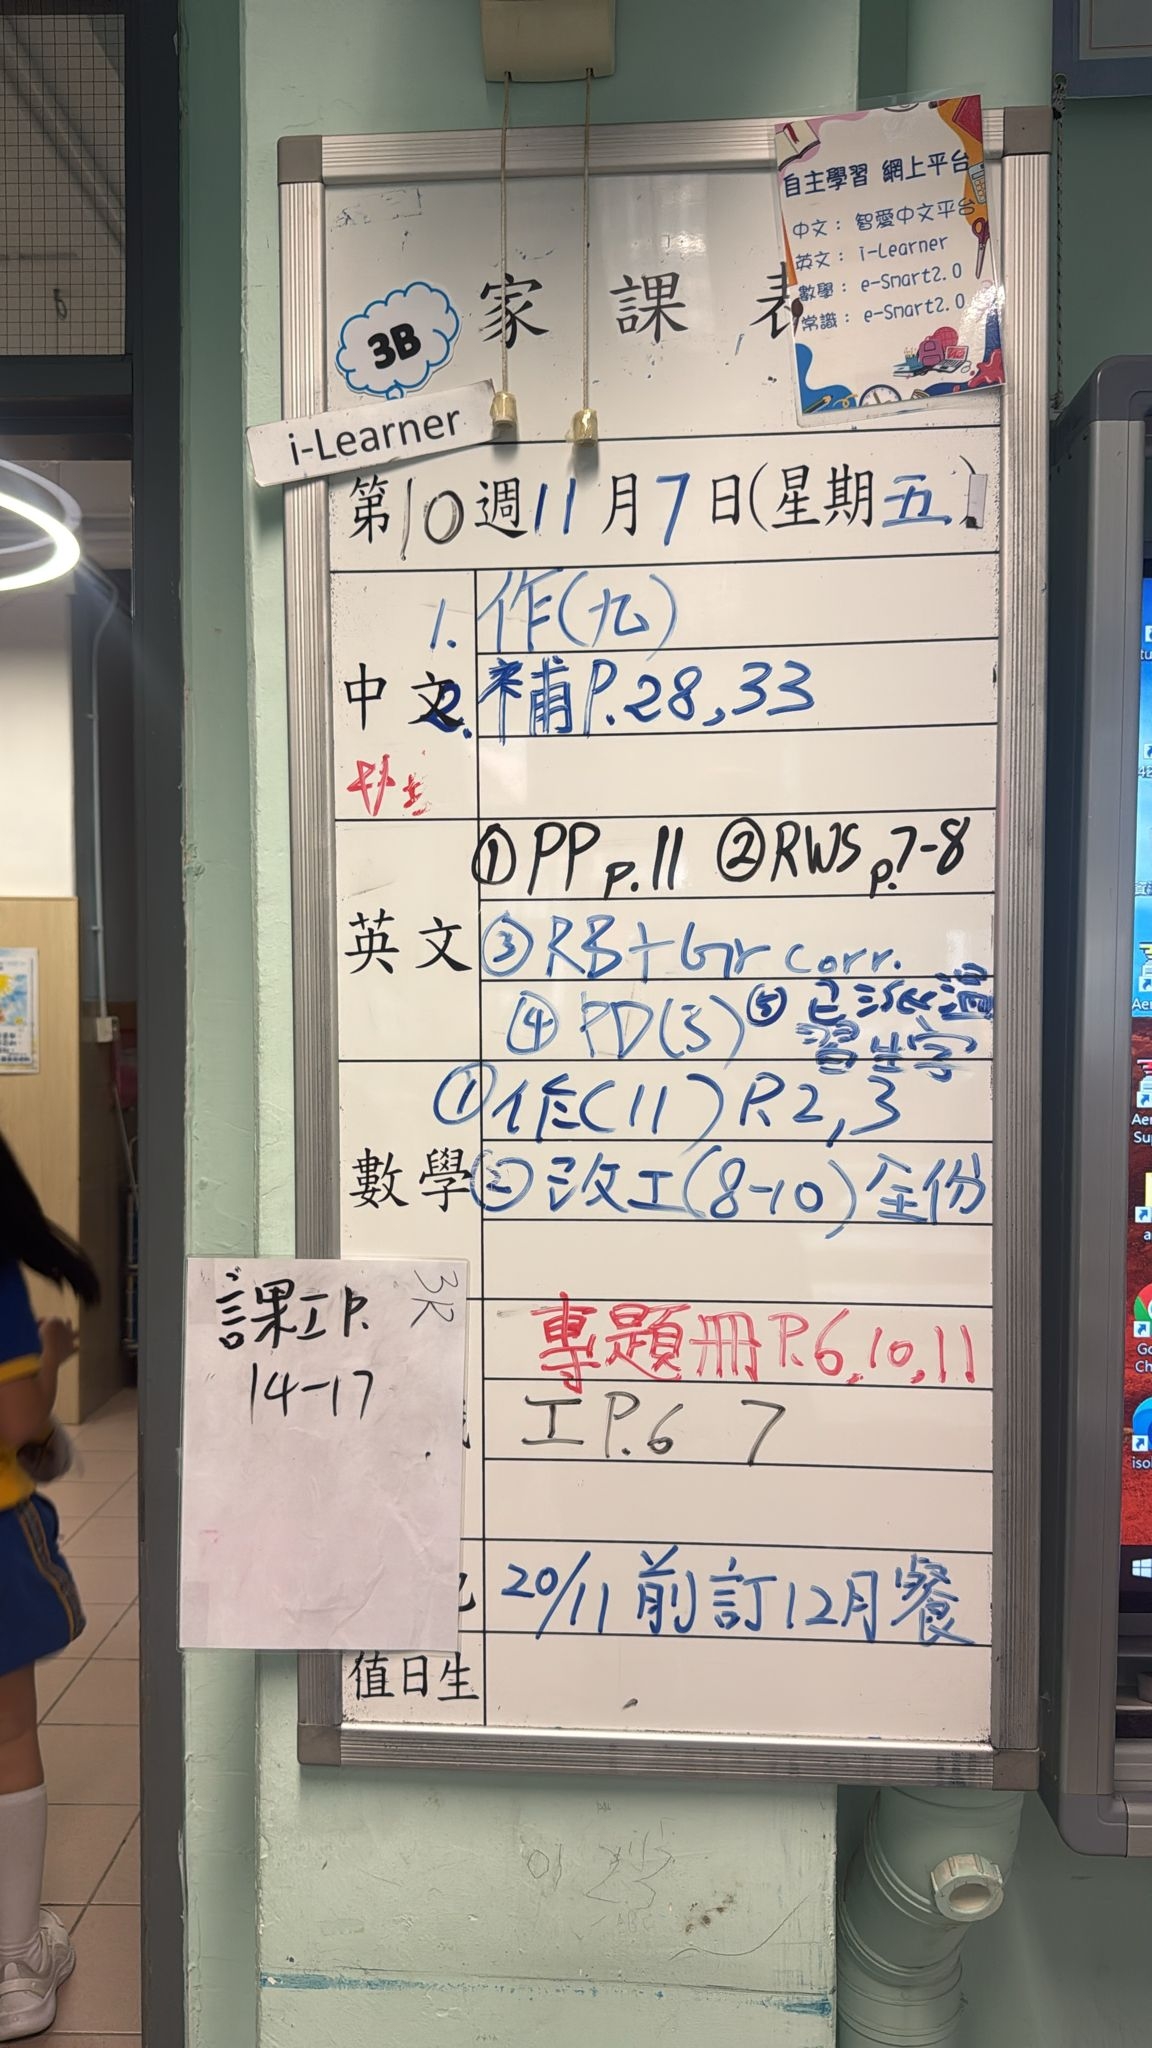 自主學習 網上平台
中文： 智愛中文平台
英文： i-Learner
數學： e-Smart2.0
常識： e-Smart2.0
家 課 表
3B
i-Learner
第10週11月7日(星期五)
中文
1. 作(九)
2. 補P.28,33
英文
①PP p.11 ②RWS p.7-8
③RB+Gr corr.
④PD(5) ⑤已派溫
習生字
數學
①作(11) P.2,3
②改工(8-10)全份
3R
課工P.
14-17
專題冊P.6,10,11
工P.6 7
20/11前訂12月餐
值日生